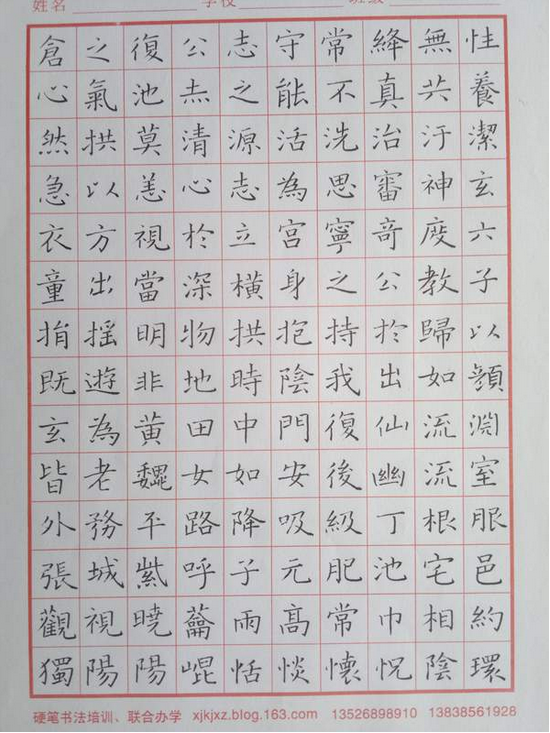 姓名 学校 班级
倉之復公志守常絳無性
心氣池之能不真共養
然拱莫清源活洗治汙潔
急以恙心志為思審神玄
衣方視於立宮寧奇度六
童出當深橫身之公教子
搖明物拱抱持於歸以
既遊非地時陰我出如顏
玄為黃田中門復仙流淵
皆老魏女如安後幽流室
外務平路降吸級丁根服
張城紫呼子元肥池宅邑
觀視曉雨高常巾相約
獨陽陽崐恬惔懷怳陰環
硬笔书法培训、联合办学 xjkjxz.blog.163.com 13526898910 13838561928